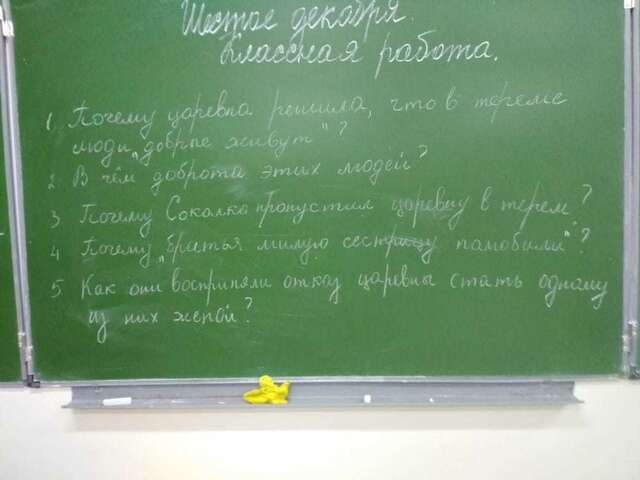 Шестое декабря.
Классная работа.
1. Почему царевна решила, что в тереме
люди „добрые живут"?
2. В чём доброта этих людей?
3 Почему Соколко пропустил царевну в терем?
4 Почему „братья милую сестрицу палюбили"?
5 Как они восприняли отказ царевны стать одному
из них женой?